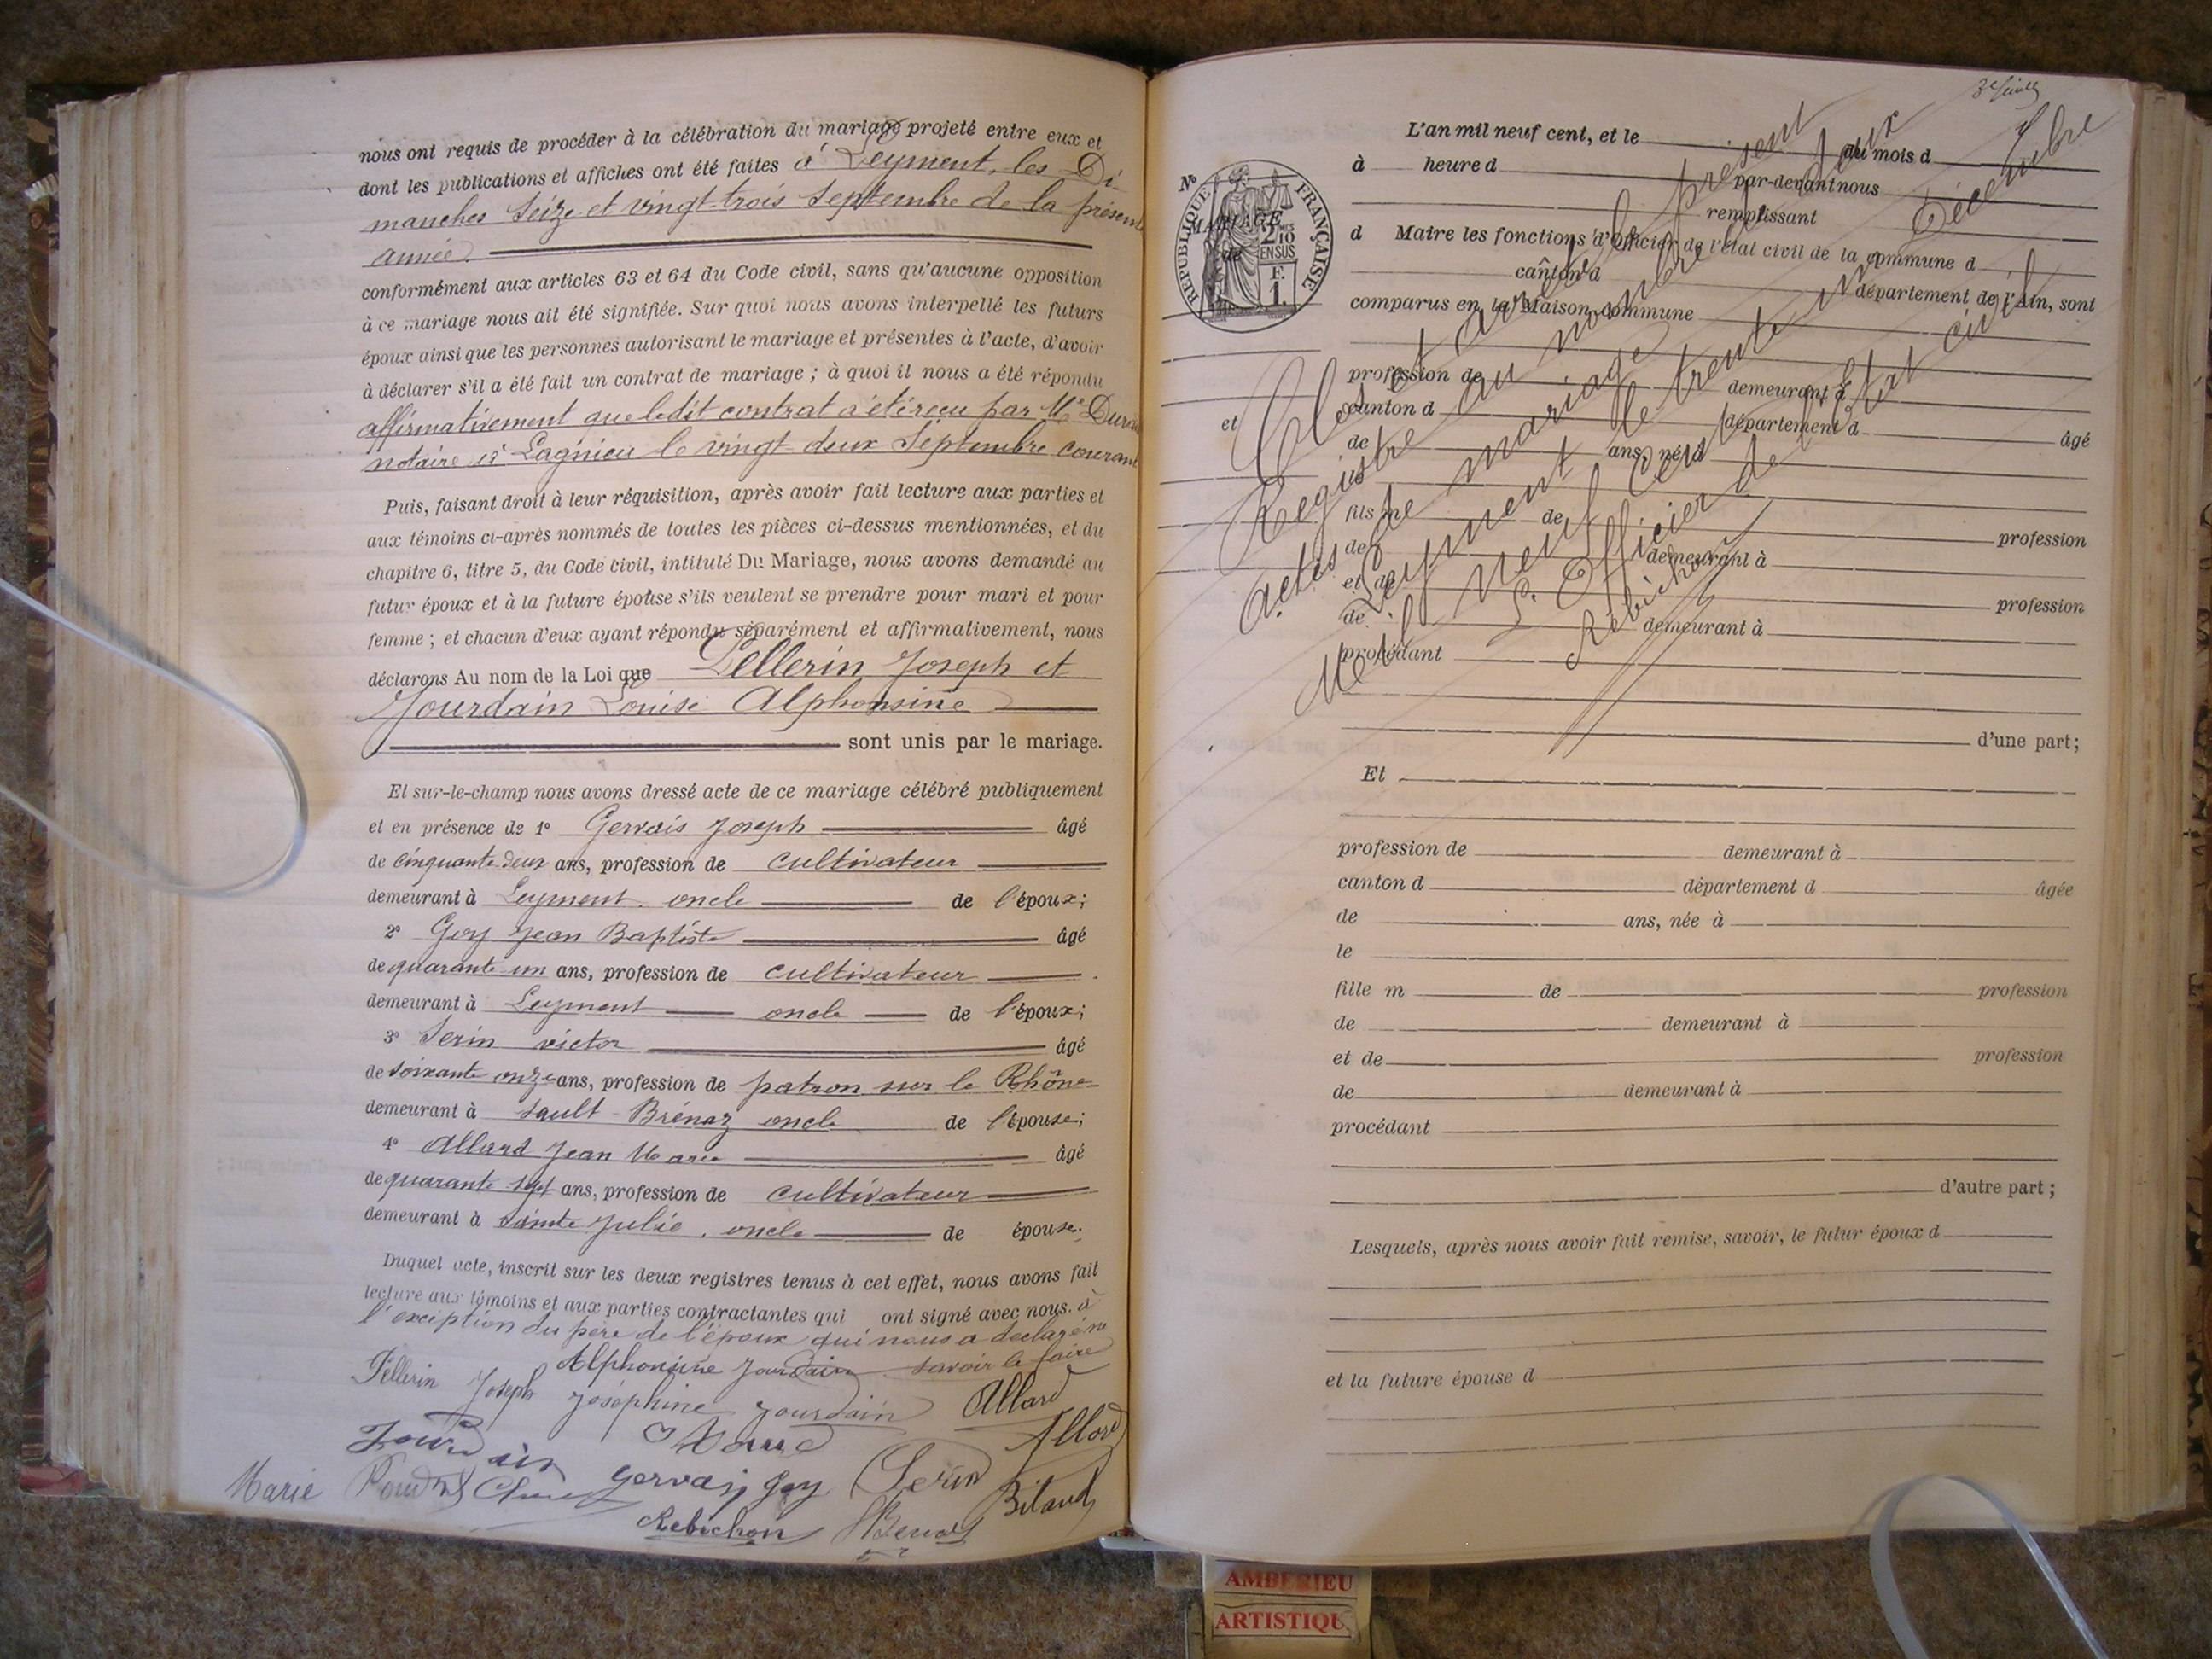 nous ont requis de procéder à la célébration du mariage projeté entre eux et
dont les publications et affiches ont été faites à Leyment, les Di
manches Seize et vingt-trois Septembre de la présente
année.
conformément aux articles 63 et 64 du Code civil, sans qu'aucune opposition
à ce mariage nous ait été signifiée. Sur quoi nous avons interpellé les futurs
époux ainsi que les personnes autorisant le mariage et présentes à l'acte, d'avoir
à déclarer s'il a été fait un contrat de mariage ; à quoi il nous a été répondu
affirmativement que ledit contrat a été reçu par Me
notaire à Lagnieu le vingt-deux Septembre courant
Puis, faisant droit à leur réquisition, après avoir fait lecture aux parties et
aux témoins ci-après nommés de toutes les pièces ci-dessus mentionnées, et du
chapitre 6, titre 5, du Code civil, intitulé Du Mariage, nous avons demandé au
futur époux et à la future épouse s'ils veulent se prendre pour mari et pour
femme ; et chacun d'eux ayant répondu séparément et affirmativement, nous
déclarons Au nom de la Loi que Pellerin Joseph et
Jourdain Louise Alphonsine
sont unis par le mariage.
Et sur-le-champ nous avons dressé acte de ce mariage célébré publiquement
et en présence de 1° Gervais Joseph âgé
de cinquante deux ans, profession de cultivateur
demeurant à Leyment oncle de l'époux;
2° Goy Jean Baptiste âgé
de quarante-un ans, profession de cultivateur
demeurant à Leyment oncle de l'époux;
3° Serin victor âgé
de soixante onze ans, profession de patron sur le Rhône
demeurant à Sault-Brénaz oncle de l'épouse;
4° Allard Jean Marie âgé
de quarante-sept ans, profession de cultivateur
demeurant à Sainte Julie, oncle de épouse.
Duquel acte, inscrit sur les deux registres tenus à cet effet, nous avons fait
lecture aux témoins et aux parties contractantes qui ont signé avec nous. à
l'exception du père de l'époux qui nous a déclaré ne
savoir le faire
Alphonsine Jourdain
Pellerin Joseph Joséphine Jourdain Allard
Jourdain Allard
Marie Gervais Goy Serin Bitaud
Rebichon
3e feuille
L'an mil neuf cent, et le du mois d
à heure d par-devant nous
remplissant
d Maire les fonctions d'officier de l'état civil de la commune d
canton d département de l'Ain, sont
comparus en la Maison commune
N°
MARIAGE
de
RÉPUBLIQUE FRANÇAISE
2/10 EN SUS
F.
1.
et
profession de demeurant à
canton d département d âgé
de ans, né à
le
fils m de profession
de demeurant à
et de profession
de demeurant à
procédant
d'une part;
Clos et arrêté le présent
Registre au nombre de deux
actes de mariage
Leyment le trente un Décembre
Mil neuf cent
L'Officier de l'Etat civil
Rebichon
Et
profession de demeurant à
canton d département d âgée
de ans, née à
le
fille m de profession
de demeurant à
et de profession
de demeurant à
procédant
d'autre part ;
Lesquels, après nous avoir fait remise, savoir, le futur époux d
et la future épouse d
AMBERIEU
ARTISTIQU